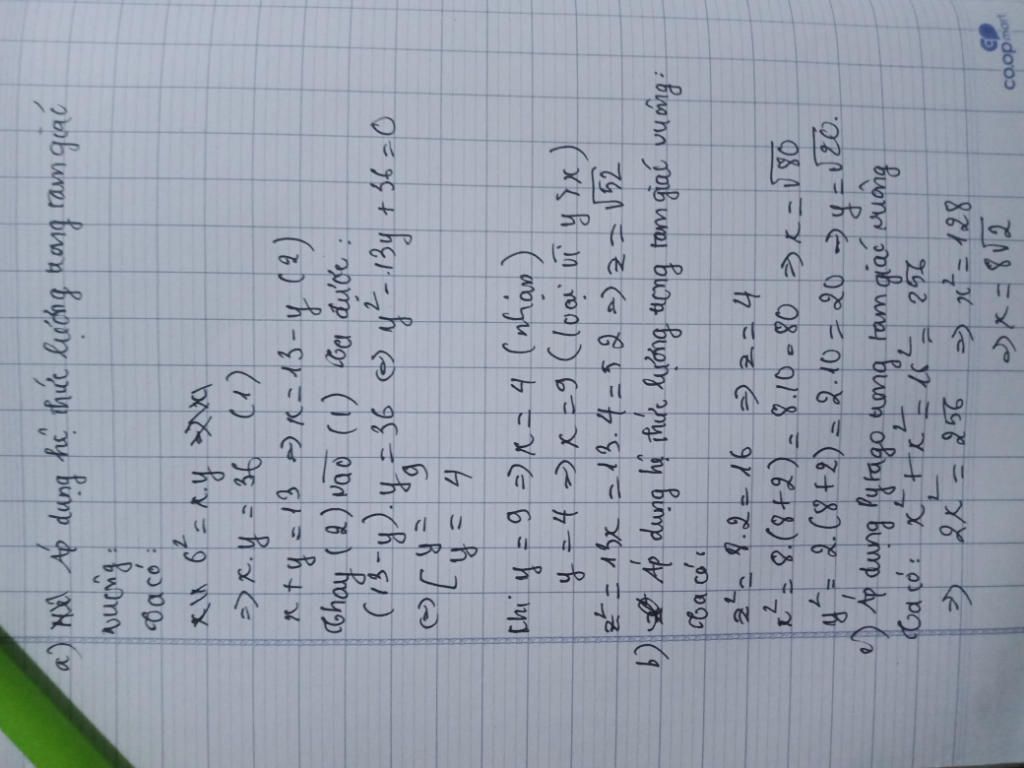 a) Áp dụng hệ thức lượng trong tam giác
vuông:
Ta có:
6² = x.y
=> x.y = 36 (1)
x + y = 13 => x = 13 - y (2)
Thay (2) vào (1) ta được:
(13 - y).y = 36 <=> y² - 13y + 36 = 0
<=> [ y = 9
y = 4
Khi y = 9 => x = 4 (nhận)
y = 4 => x = 9 (loại vì y > x)
z² = 13x = 13.4 = 52 => z = √52
b) Áp dụng hệ thức lượng trong tam giác vuông:
Ta có:
z² = 8.2 = 16 => z = 4
x² = 8.(8+2) = 8.10 = 80 => x = √80
y² = 2.(8+2) = 2.10 = 20 => y = √20.
c) Áp dụng Pytago trong tam giác vuông
Ta có: x² + x² = 16² = 256
=> 2x² = 256 => x² = 128
=> x = 8√2
co.opmart